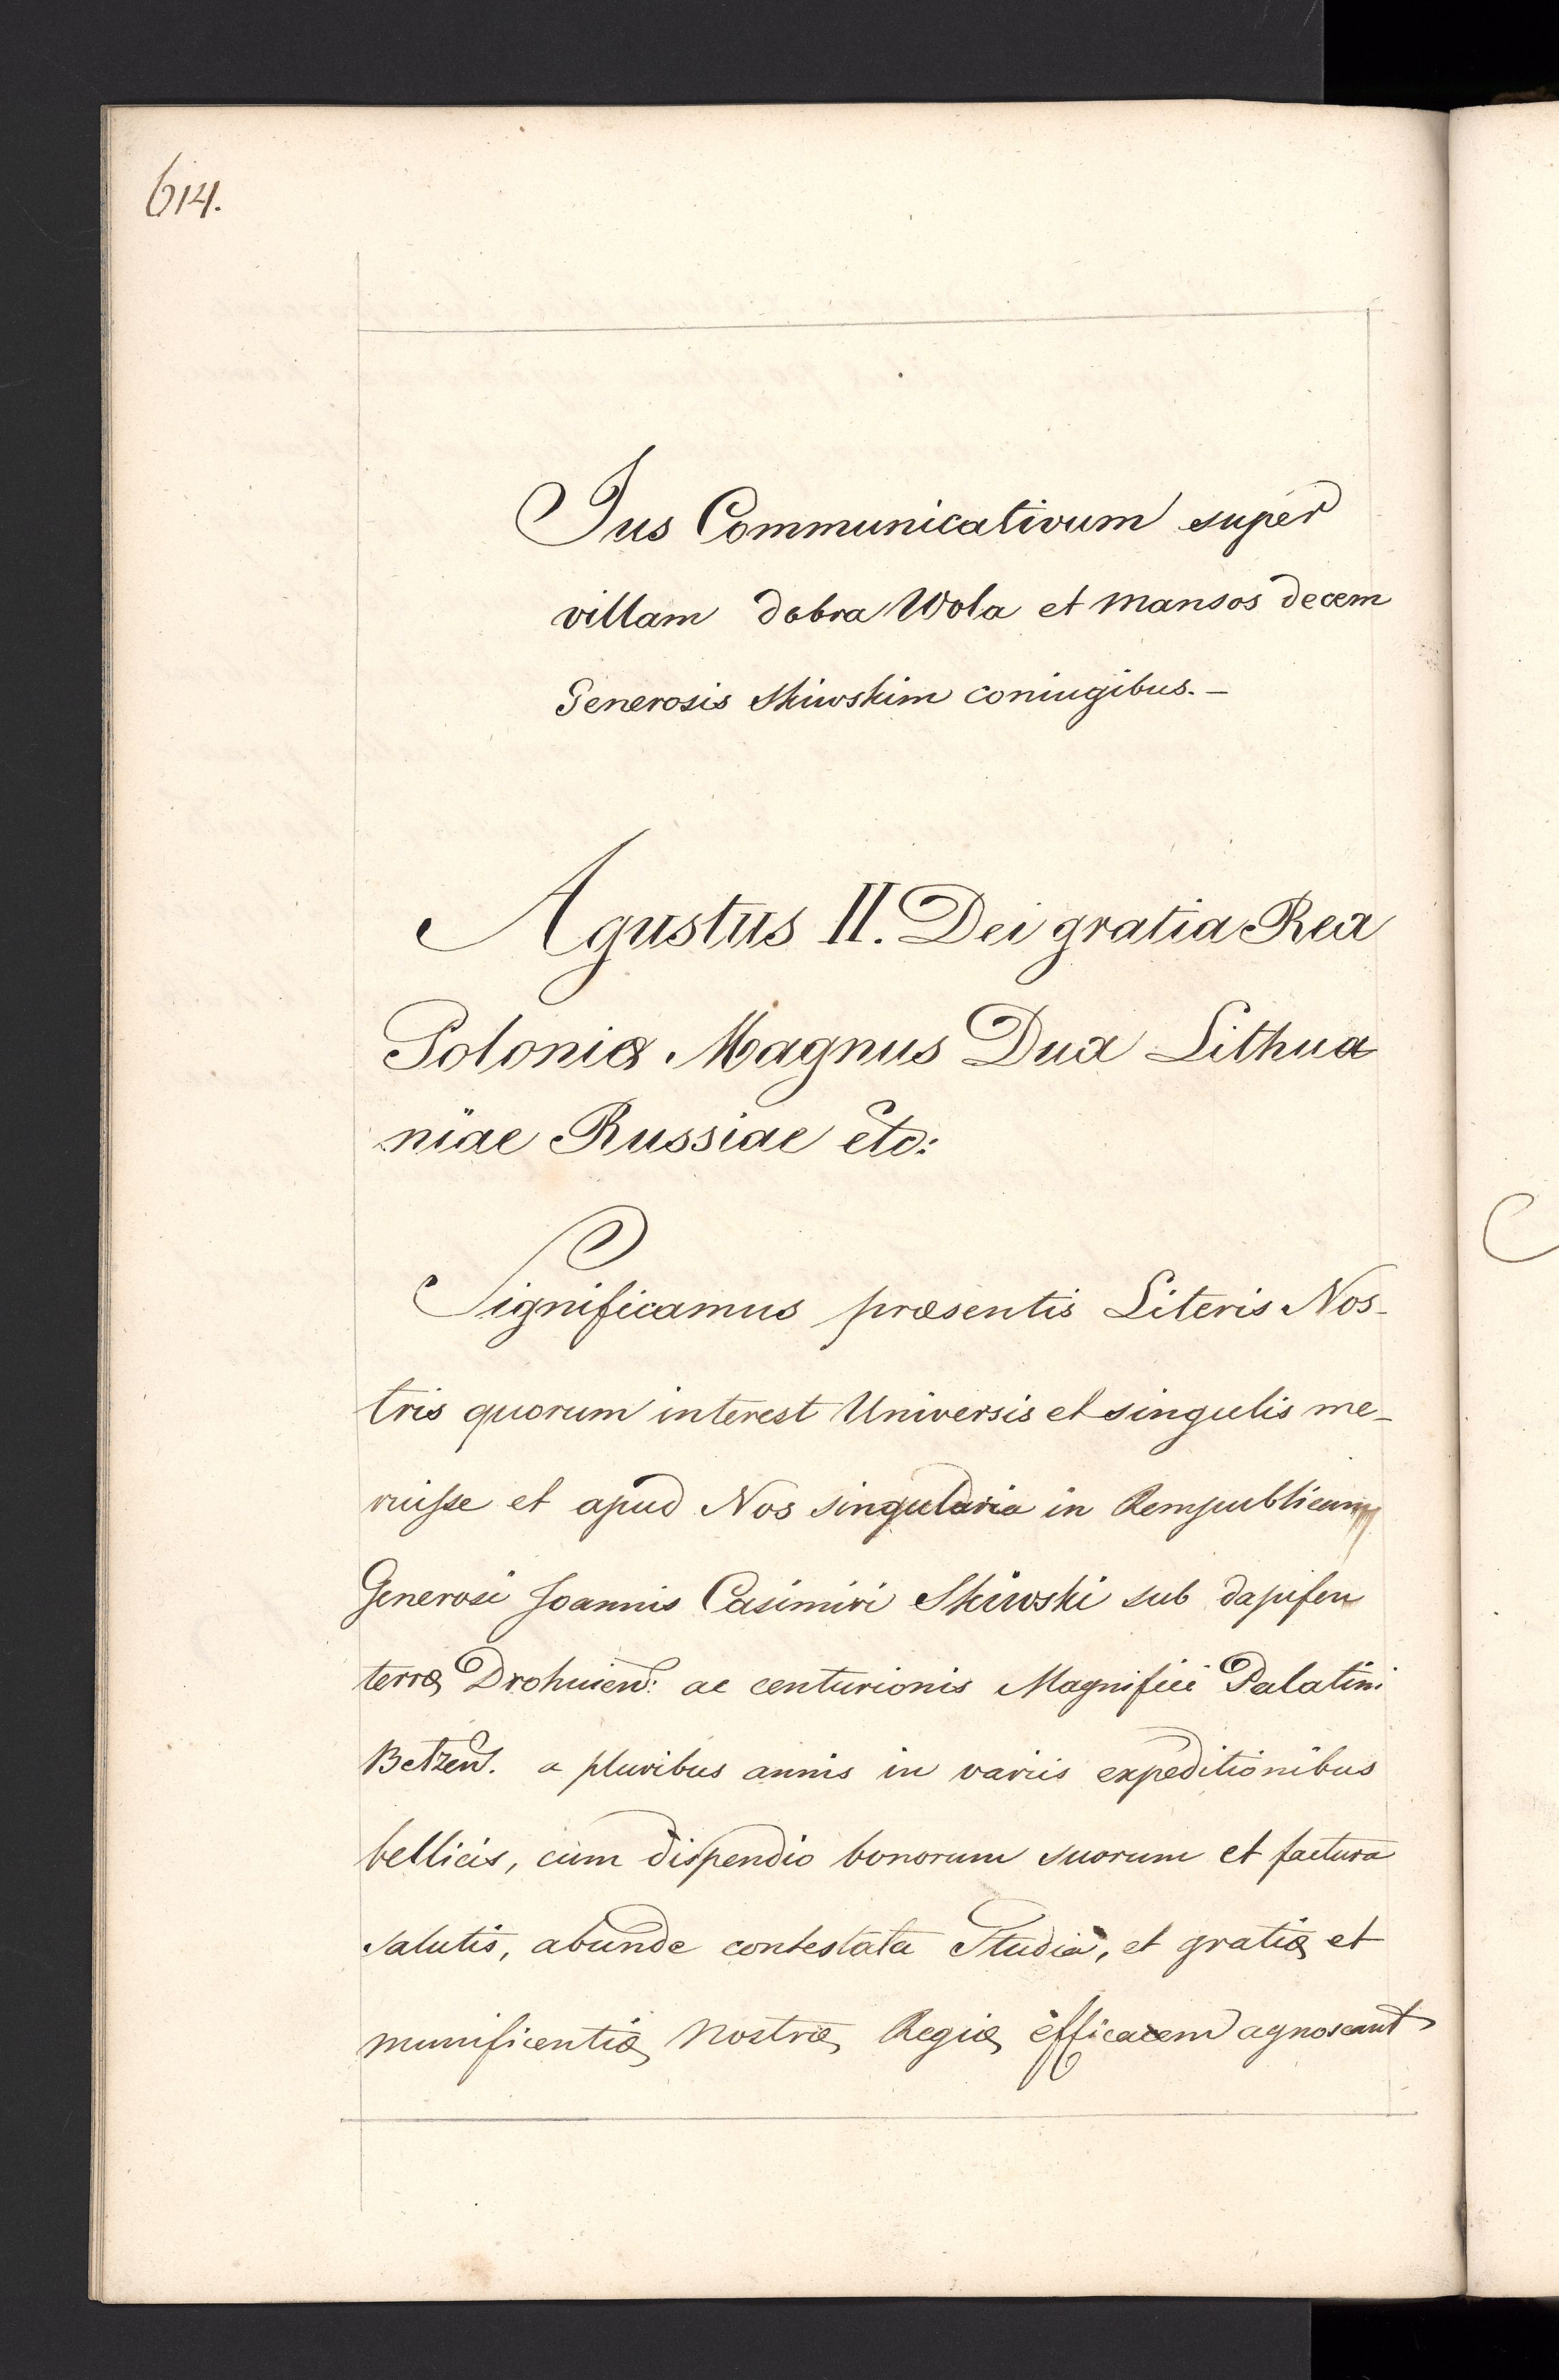 614.
Jus Communicativum super
villam dobra Wola et mansos decem
Generosis Skiwskim coniugibus.-
Agustus II. Dei gratia Rex
Poloniæ Magnus Dux Lithua
niae Russiae etc:
Significamus præsentis Literis Nos-
tris quorum interest Universis et singulis me-
ruisse et apud Nos singularia in Rempublicam
Generosi Joannis Casimiri Skiwski sub dapiferi
terræ Drohicien: ac centurionis Magnifici Palatini
Betzen. a pluribus annis in variis expeditionibus
bellicis, cum dispendio bonorum suorum et factura
salutis, abunde contestata Studia, et gratiæ et
munificentiæ Nostræ Regiæ efficacem agnoscant